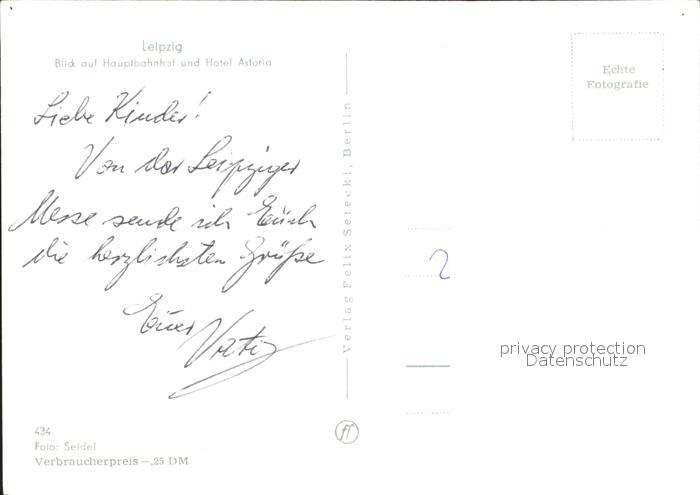 Leipzig
Blick auf Hauptbahnhof und Hotel Astoria
Liebe Kinder!
Von der Leipziger
Messe sende ich Euch
die herzlichsten Grüße
Euer
Vati
434
Foto: Seidel
Verbraucherpreis –,25 DM
Verlag Felix Setecki, Berlin
ff
Echte
Fotografie
2
privacy protection
Datenschutz